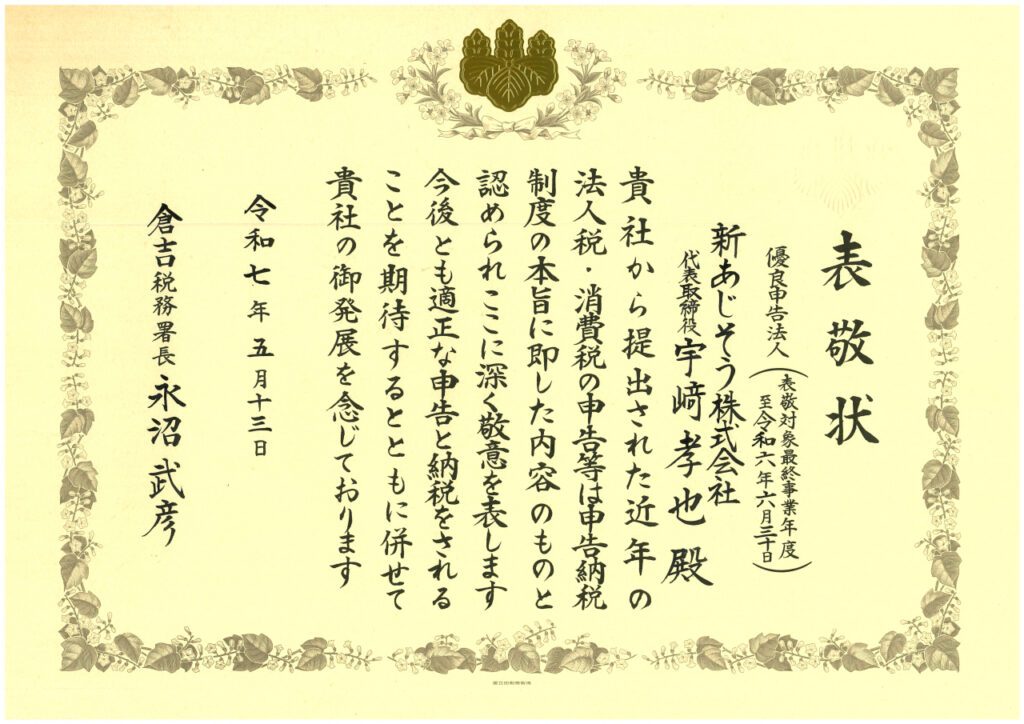 表敬状
優良申告法人
(表敬対象最終事業年度
至令和六年六月三十日)
新あじそう株式会社
代表取締役 宇﨑孝也 殿
貴社から提出された近年の
法人税・消費税の申告等は申告納税
制度の本旨に即した内容のものと
認められここに深く敬意を表します
今後とも適正な申告と納税をされる
ことを期待するとともに併せて
貴社の御発展を念じております
令和七年五月十三日
倉吉税務署長 永沼武彦